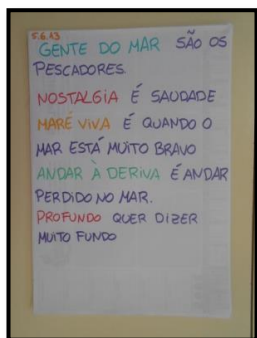 5.6.13
GENTE DO MAR SÃO OS
PESCADORES.
NOSTALGIA É SAUDADE
MARÉ VIVA É QUANDO O
MAR ESTÁ MUITO BRAVO
ANDAR À DERIVA É ANDAR
PERDIDO NO MAR.
PROFUNDO QUER DIZER
MUITO FUNDO